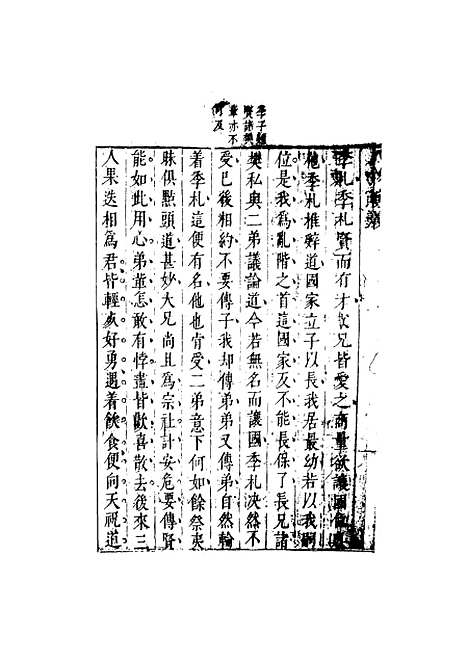 季子頗
賢諸樊
輩亦不
可及
季札季札賢而有才衆兄皆愛之商量欲讓國與
他季札推辭道國家立子以長我居最幼若以我嗣
位是我爲亂階之首這國家反不能長保了長兄諸
樊私與二弟議論道今若無名而讓國季札決然不
受已後相約不要傳子我却傳弟弟又傳弟自然輪
着季札這便有名他也肯受二弟意下何如餘祭夷
昧俱點頭道甚妙大兄尚且爲宗社計安危要傳賢
能如此用心弟輩怎敢有悖盡皆歡喜散去後來三
人果迭相爲君皆輕死好勇遇着飲食便向天祝道